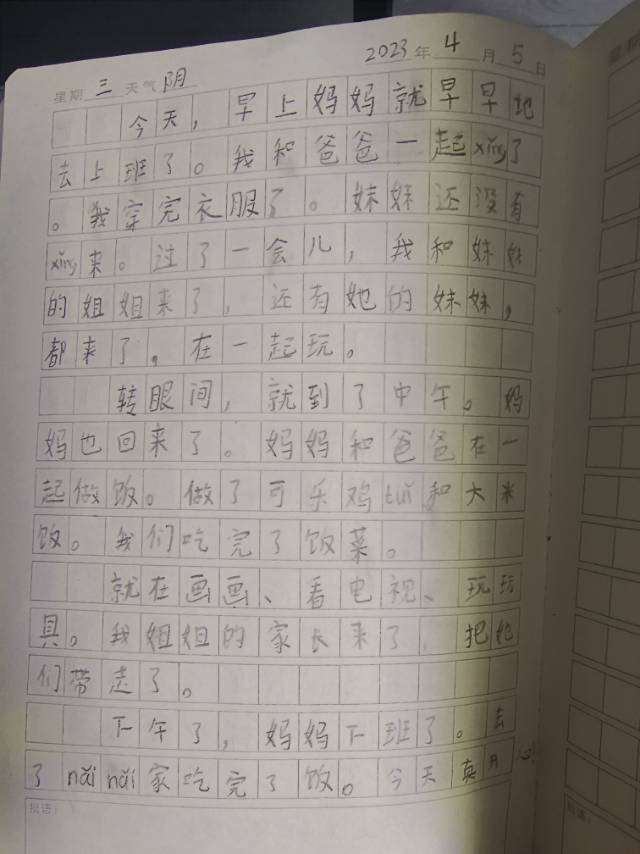 2023年4月5日
星期三 天气阴
今天，早上妈妈就早早地
去上班了。我和爸爸一起xǐng了
。我穿完衣服了。妹妹还没有
xǐng来。过了一会儿，我和妹妹
的姐姐来了，还有她的妹妹，
都来了，在一起玩。
转眼间，就到了中午。妈
妈也回来了。妈妈和爸爸在一
起做饭。做了可乐鸡tuǐ和大米
饭。我们吃完了饭菜。
就在画画、看电视、玩玩
具。我姐姐的家长来了，把她
们带走了。
下午了，妈妈下班了。去
了nǎi nǎi家吃完了饭。今天真开心
批语：